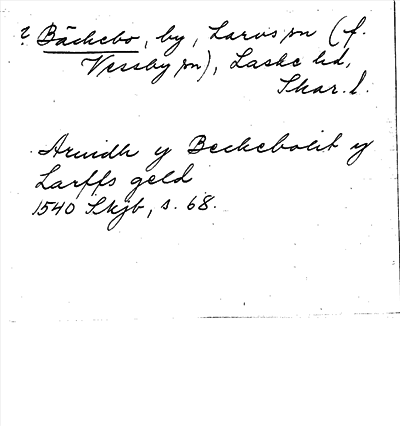 ? Bäckebo, by, Larvs sn (f.
Vessby sn), Laske hd,
Skar. l.
Arvidh y Beckebolit y
Larffs geld
1540 Skjb, s. 68.